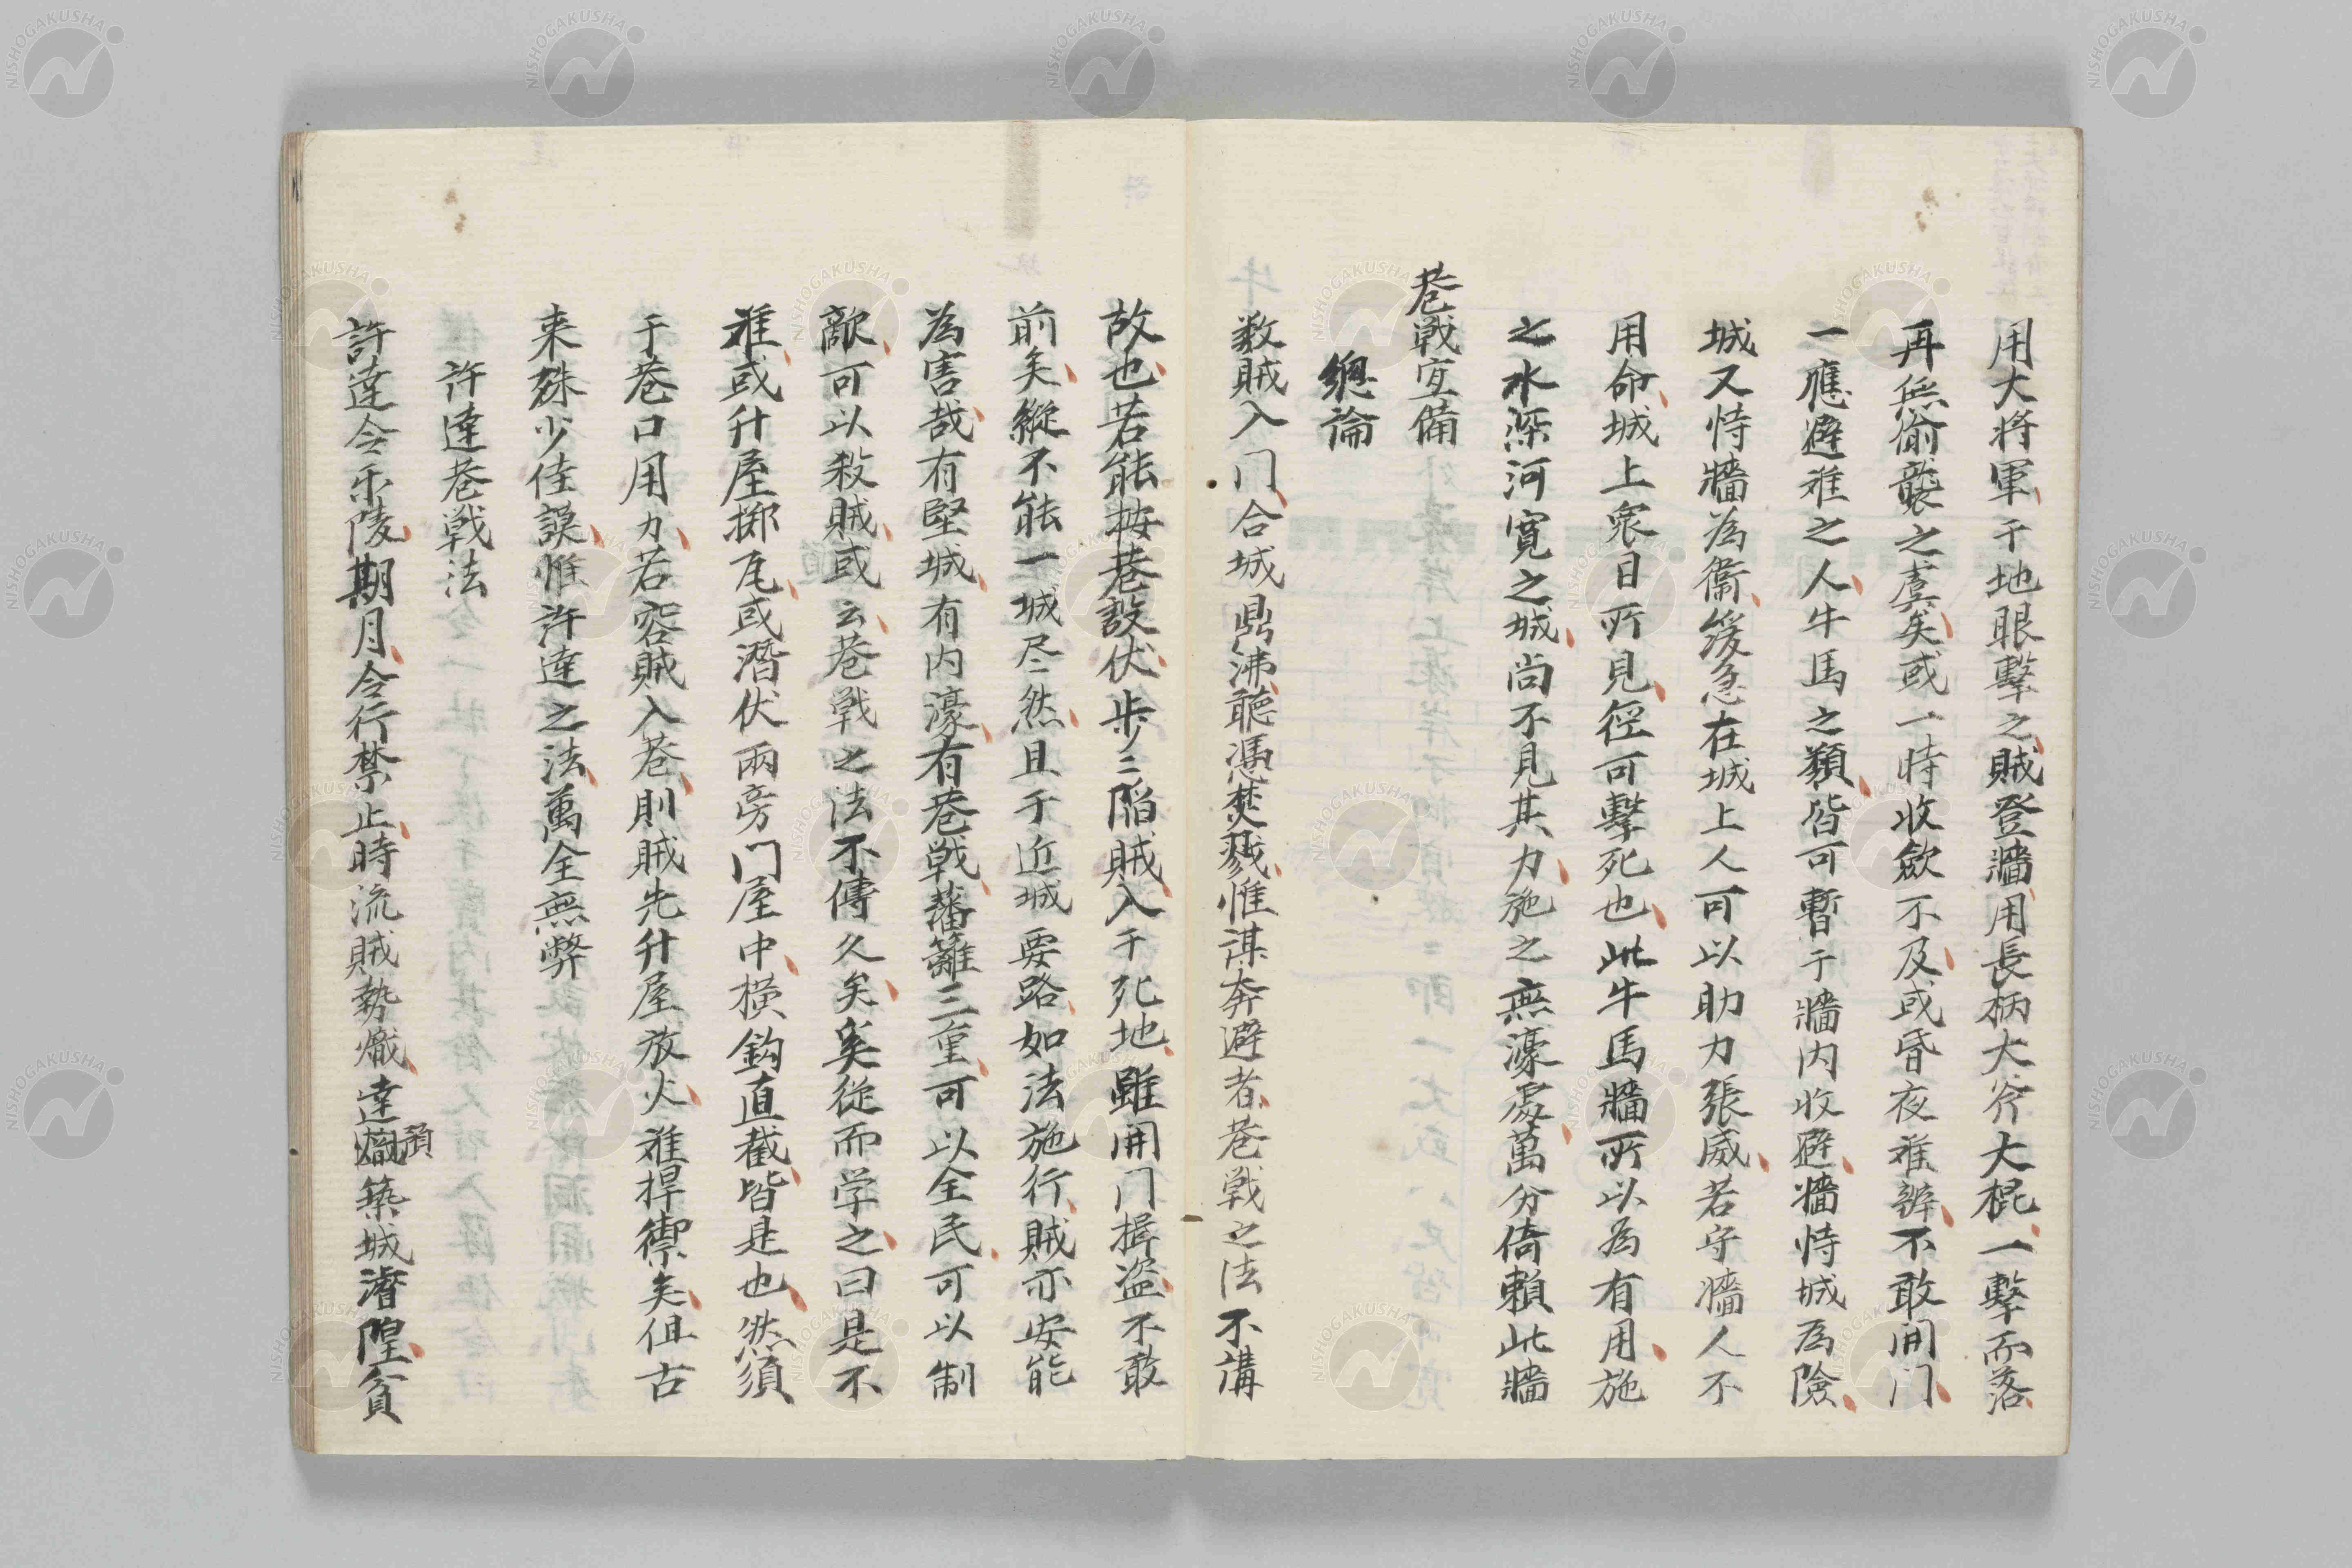 用大将軍于地眼擊之賊登牆用長柄大斧大棍一擊而落
再無偷襲之虞矣或一時收斂不及或昏夜难辨不敢開门
一應避难之人牛馬之類皆可暫于牆内收避牆恃城為險
城又恃牆為衞緩急在城上人可以助力張威若守牆人不
用命城上衆目所見徑可擊死也此牛馬牆所以為有用施
之水深河寬之城尚不見其力施之無濠處萬分倚賴此牆
巷戦宜備
總論
数賊入门合城鼎沸聽憑焚戮惟谋奔避者巷戦之法不講
故也若能按巷設伏步〻陷賊入于死地雖開门揖盗不敢
前矣縱不能一城尽然且于近城要路如法施行賊亦安能
為害哉有堅城有内濠有巷戦藩籬三重可以全民可以制
敵可以殺賊或云巷戦之法不傳久矣奚從而学之曰是不
难或升屋擲瓦或潛伏兩旁门屋中橫鈎直截皆是也然須
于巷口用力若容賊入巷則賊先升屋放火难捍禦矣但古
来殊少佳誤惟許逵之法萬全無弊
許逵巷戦法
許逵令乐陵期月令行禁止時流賊勢熾逵預築城濬隍貧
NISHOGAKUSHA